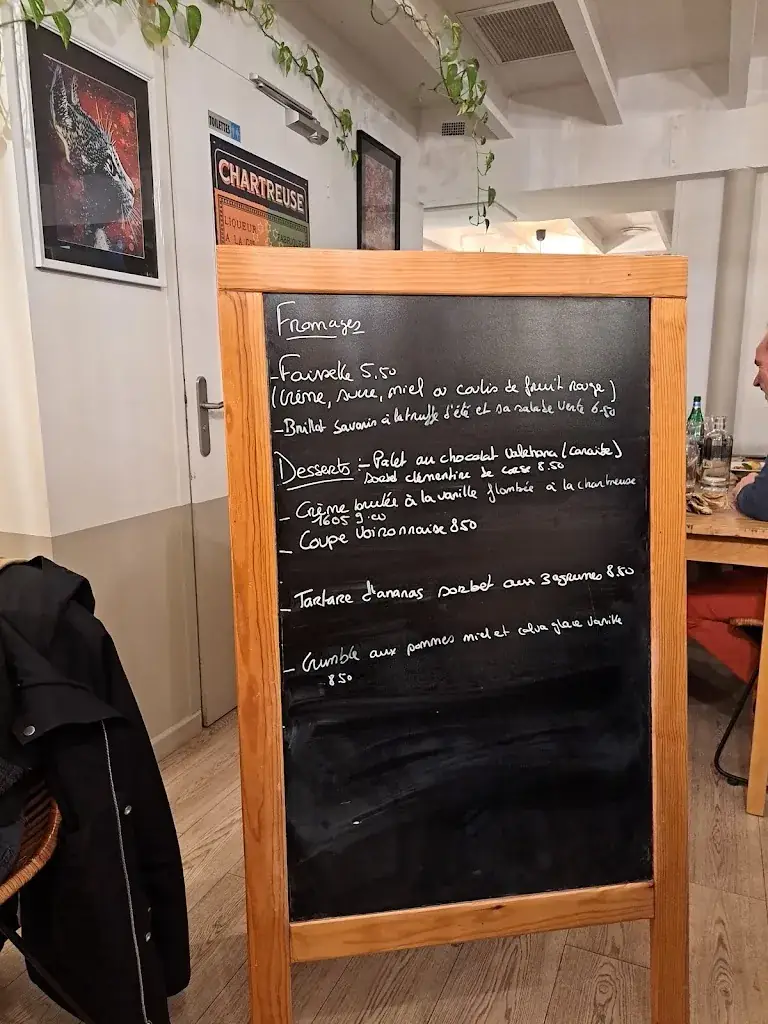 TOILETTES
CHARTREUSE
LIQUEUR
Fromages
- Faisselle 5.50
(Crème, sucre, miel ou coulis de fruit rouge)
- Brillat Savarin à la truffe d'été et sa salade verte 6.50
Desserts :- Palet au chocolat Valrhona (caraïbe)
sorbet clémentine de corse 8.50
- Crème brulée à la vanille flambée à la chartreuse
1605 9.00
- Coupe Voironnaise 8.50
- Tartare d'ananas sorbet aux 3 agrumes 8.50
- Crumble aux pommes miel et calva glace vanille
8.50